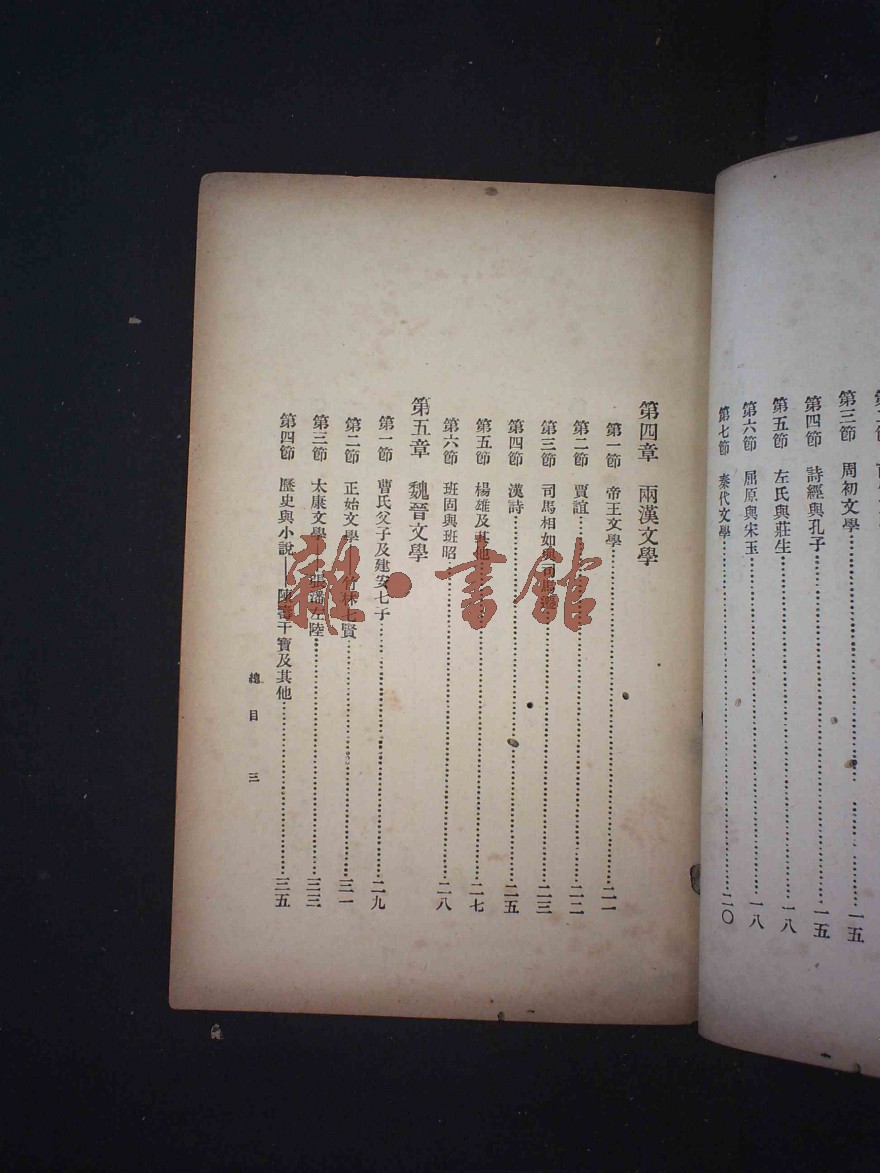 第三節　周初文學……一五
第四節　詩經與孔子……一五
第五節　左氏與莊生……一八
第六節　屈原與宋玉……一八
第七節　秦代文學……二〇
第四章　兩漢文學
第一節　帝王文學……二一
第二節　賈誼……二二
第三節　司馬相如與司馬遷……二三
第四節　漢詩……二五
第五節　楊雄及其他……二七
第六節　班固與班昭……二八
第五章　魏晉文學
第一節　曹氏父子及建安七子……二九
第二節　正始文學——竹林七賢……三一
第三節　太康文學——張潘左陸……三三
第四節　歷史與小說——陳壽干寶及其他……三五
總目　三
雜·書館